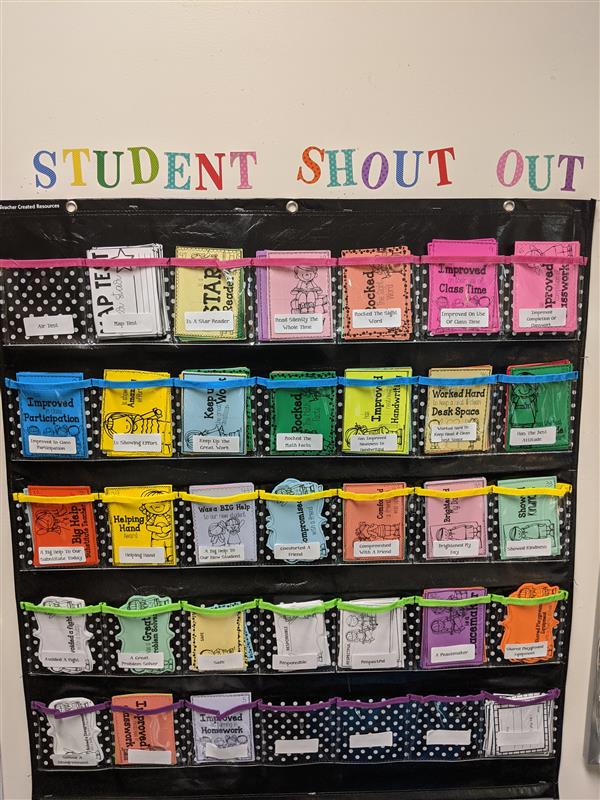 STUDENT SHOUT OUT
Teacher Created Resources
MAP TEST
STAR
Reader
Rocked
Improved
Class Time
Improved
Air Test
Map Test
Is A Star Reader
Read Silently The
Whole Time
Rocked The Sight
Word
Improved On Use
Of Class Time
Improved
Completion Of
Classwork
Improved
Participation
Keep
Work
Rocked
Improved
Handwriting
Worked Hard
Desk Space
Improved In Class
Participation
Is Showing Effort
Keep Up The
Great Work
Rocked The
Math Facts
Has Improved
Neatness In
Handwriting
Worked Hard To
Keep A Neat & Clean
Desk Space
Has The Best
Attitude
Big Help
Substitute Teacher
Helping
Hand
Award
Was a BIG Help
to our new student
Compromise
Brightened
My Day
Showed
Kindness
A Big Help To Our
Substitute Today
Helping Hand
A Big Help To
Our New Student
Comforted A
Friend
Compromised
With A Friend
Brightened My
Day
Showed Kindness
Avoided a fight
Great
Problem Solver
SAFE
RESPONSIBLE
RESPECTFUL
Peacemaker
Shared Playground
Equipment
Avoided A Fight
A Great
Problem Solver
Safe
Responsible
Respectful
A Peacemaker
Shared Playground
Equipment
Improved
Classwork
Improved
Homework